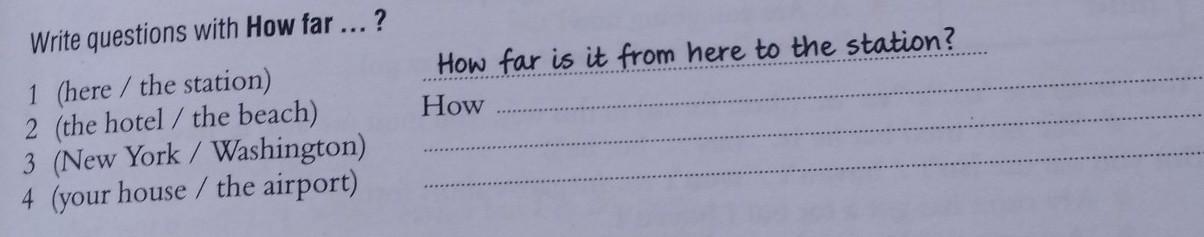 Write questions with How far ... ?
1 (here / the station) How far is it from here to the station?
2 (the hotel / the beach) How
3 (New York / Washington)
4 (your house / the airport)